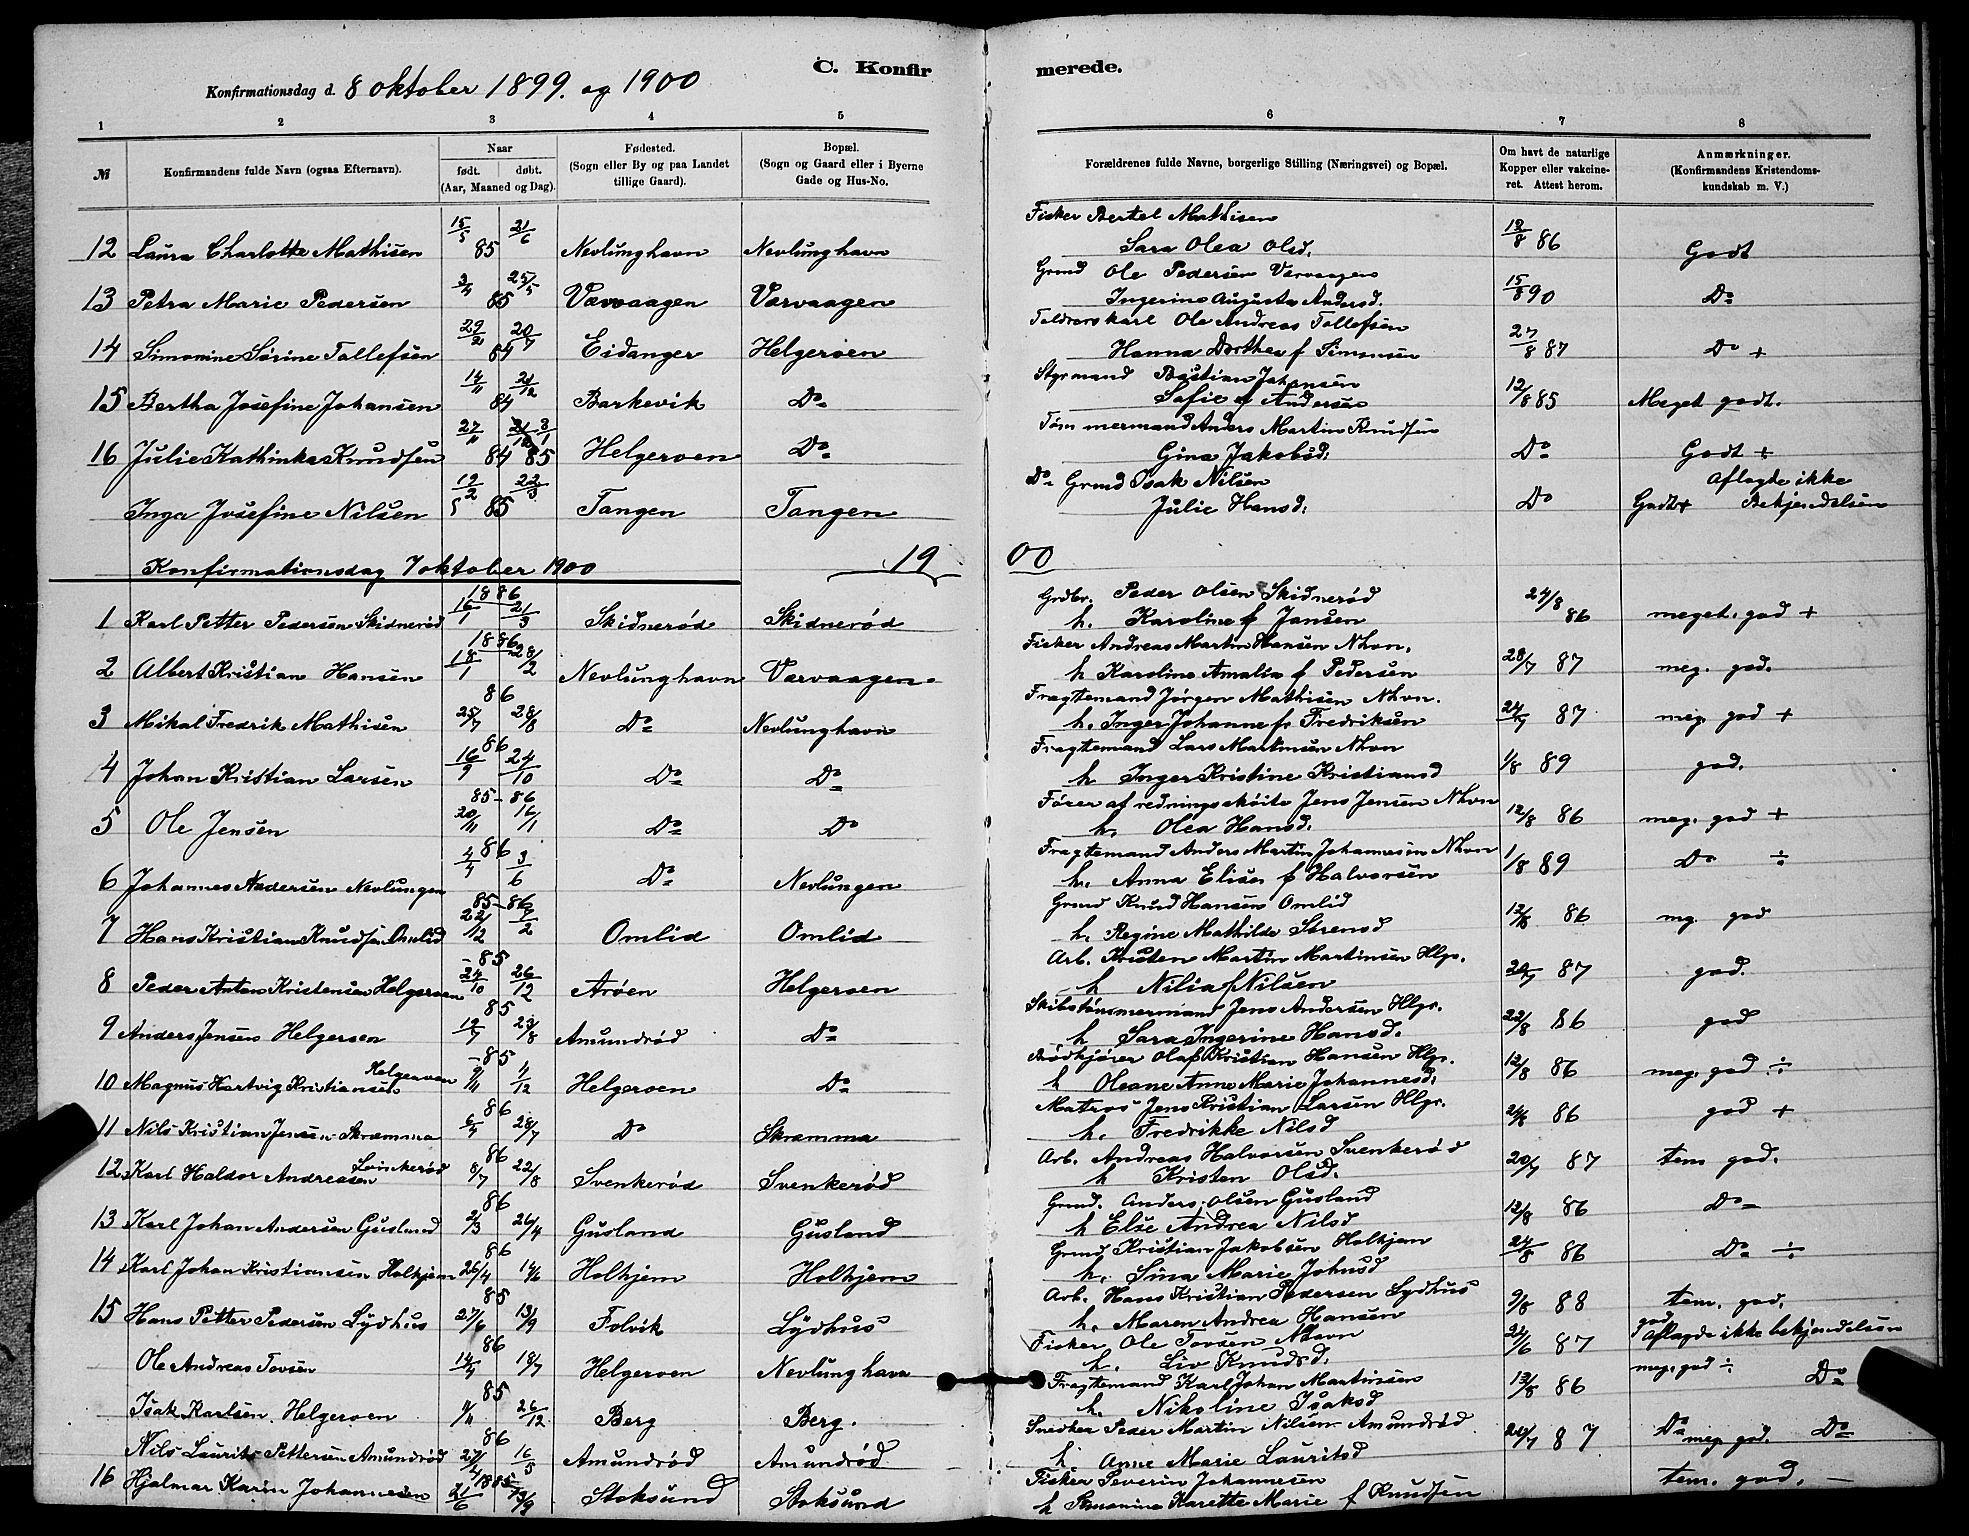 C. Konfir
merede.
Konfirmationsdag d. 8 oktober 1899. og 1900
1 2 3 4 5 6 7 8
№ Konfirmandens fulde Navn (ogsaa Efternavn). Naar født. døbt. (Aar, Maaned og Dag). Fødested. (Sogn eller By og paa Landet tillige Gaard). Bopæl. (Sogn og Gaard eller i Byerne Gade og Hus-No. Forældrenes fulde Navne, borgerlige Stilling (Næringsvei) og Bopæl. Om havt de naturlige Kopper eller vakcineret. Attest herom. Anmærkninger. (Konfirmandens Kristendomskundskab m. V.)
12 Laura Charlotte Mathisen 15/5 85 21/6 Nevlunghavn Nevlunghavn Fisker Bertel Mathisen 86 Godt
Sara Olea Olsd.
13 Petra Marie Pedersen 85 25/5 Varvaagen Varvaagen Grmd Ole Pedersen Varvaagen 15/8 90 Do
Ingerine Augusta Andersd.
14 Simonine Sørine Tollefsen 29/2 84 20/7 Eidanger Helgeroen Ole Andreas Tollefsen 27/8 87 Do +
Hanna Dorthea f Simonsen
15 Bertha Josefine Johansen 14/11 84 21/12 Barkevik Do Styrmand Bastian Johansen 12/8 85 Meget godt.
Sofie f Andersen
16 Julie Kathinka Knudsen 27/11 84 3/1 85 Helgeroen Do Tømmermand Anders Martin Knudsen Do Godt +
Gina Jakobsd.
Inga Josefine Nilsen 12/2 85 22/3 Tangen Tangen Do Grmd Isak Nilsen Do Godt + Aflagde ikke Bekjendelsen
Julie Hansd.
Konfirmationsdag 7 oktober 1900 19 00
1 Karl Petter Pedersen Skidnerød 1886 16/1 21/3 Skidnerød Skidnerød Grdbr. Peder Olsen Skidnerød 24/8 86 meget. god +
h. Karoline f Jansen
2 Albert Kristian Hansen 1886 18/1 28/2 Nevlunghavn Varvaagen Fisker Andreas Martin Hansen Nhvn. 28/7 87 meg. god.
h Karoline Amalia f Pedersen
3 Mikal Fredrik Mathisen 86 25/7 28/8 Do Nevlunghavn Fragtemand Jørgen Mathisen Nhvn. 87 meg. god +
h. Inger Johanne f. Fredriksen
4 Johan Kristian Larsen 86 16/9 24/10 Do Do Fragtemand Lars Martinsen Nhvn 1/8 89 god.
h Inger Kristine Kristiansd
5 Ole Jensen 85-86 20/11 16/1 Do Do Fører af redningsskøite Jens Jensen Nhvn 12/8 86 meg. god +
h. Olea Hansd.
6 Johannes Andersen Nevlungen 86 4/4 3/6 Do Nevlungen Fragtemand Anders Martin Johannesen Nhvn 1/8 89 Do ÷
h. Anna Elise f Halvorsen
7 Hans Kristian Knudsen Omlid 85-86 22/12 Omlid Omlid Grmd Knud Hansen Omlid 12/8 86 mg. god
h. Regine Mathilde Sørensd
8 Peder Anton Kristensen Helgeroen -85 24/10 26/12 Arøen Helgeroen Arb. Kristen Martin Martinsen Hlgr. 20/7 87 god.
h Nilia f Nilsen
9 Anders Jensen Helgeroen 85 12/7 23/8 Amundrød Do Skibstømmermand Jens Andersen Hlgr. 22/8 86 god
h Sara Ingerine Hansd.
10 Magnus Hartvig Kristiansen Helgeroen -85 Helgeroen Do Olaf Kristian Hansen Hlgr. 12/8 86 meg. god ÷
h Oleane Anne Marie Johannesd.
11 Nils Kristian Jensen Skræmma 86 28/7 Do Skræmma Matros Jens Kristian Larsen Hlgr. 86 god +
h. Fredrikke Nilsd
12 Karl Haldor Andreasen Svinkerød 86 8/7 22/8 Svenkerød Svenkerød Arb. Andreas Halvorsen Svenkerød 20/7 87 tem god.
h Kristen Olsd.
13 Karl Johan Andersen Gusland 86 26/4 Gusland Gusland Grmd. Anders Olsen Gusland 12/8 86 Do
h Else Andrea Nilsd
14 Karl Johan Kristiansen Holkjem 86 26/4 14/6 Holkjem Holkjem Grmd Kristian Jakobsen Holkjem 24/8 86 Do ÷
h. Sina Marie Johnsd
15 Hans Petter Pedersen Lydhus 85 27/6 13/9 Folvik Lydhus Arb. Hans Kristian Pedersen Lydhus 9/8 88 tem. god.
h. Maren Andrea Hansen
Ole Andreas Tovsen 86 14/4 18/7 Helgeroen Nevlunghavn Fisker Ole Tovsen Nhavn 24/6 87 god Aflagde ikke bekjendelsen
h. Liv Knudsd.
Isak Karlsen Helgeroen 85 26/12 Berg Berg. Fragtemand Karl Johan Martinsen 13/8 86 meg. god ÷ Do
h. Nikoline Isaksd
Nils Laurits Pettersen Amundrød 86 16/5 Amundrød Amundrød Snedker Peder Martin Nilsen Amundrød 87 Do meg god. Do
h. Anne Marie Lauritsd
16 Hjalmar Karin Johannesen 1885 21/6 13/9 Stoksund Stoksund Fisker Severin Johannesen tem. god. —
h Simonine Karette Marie f Knudsen